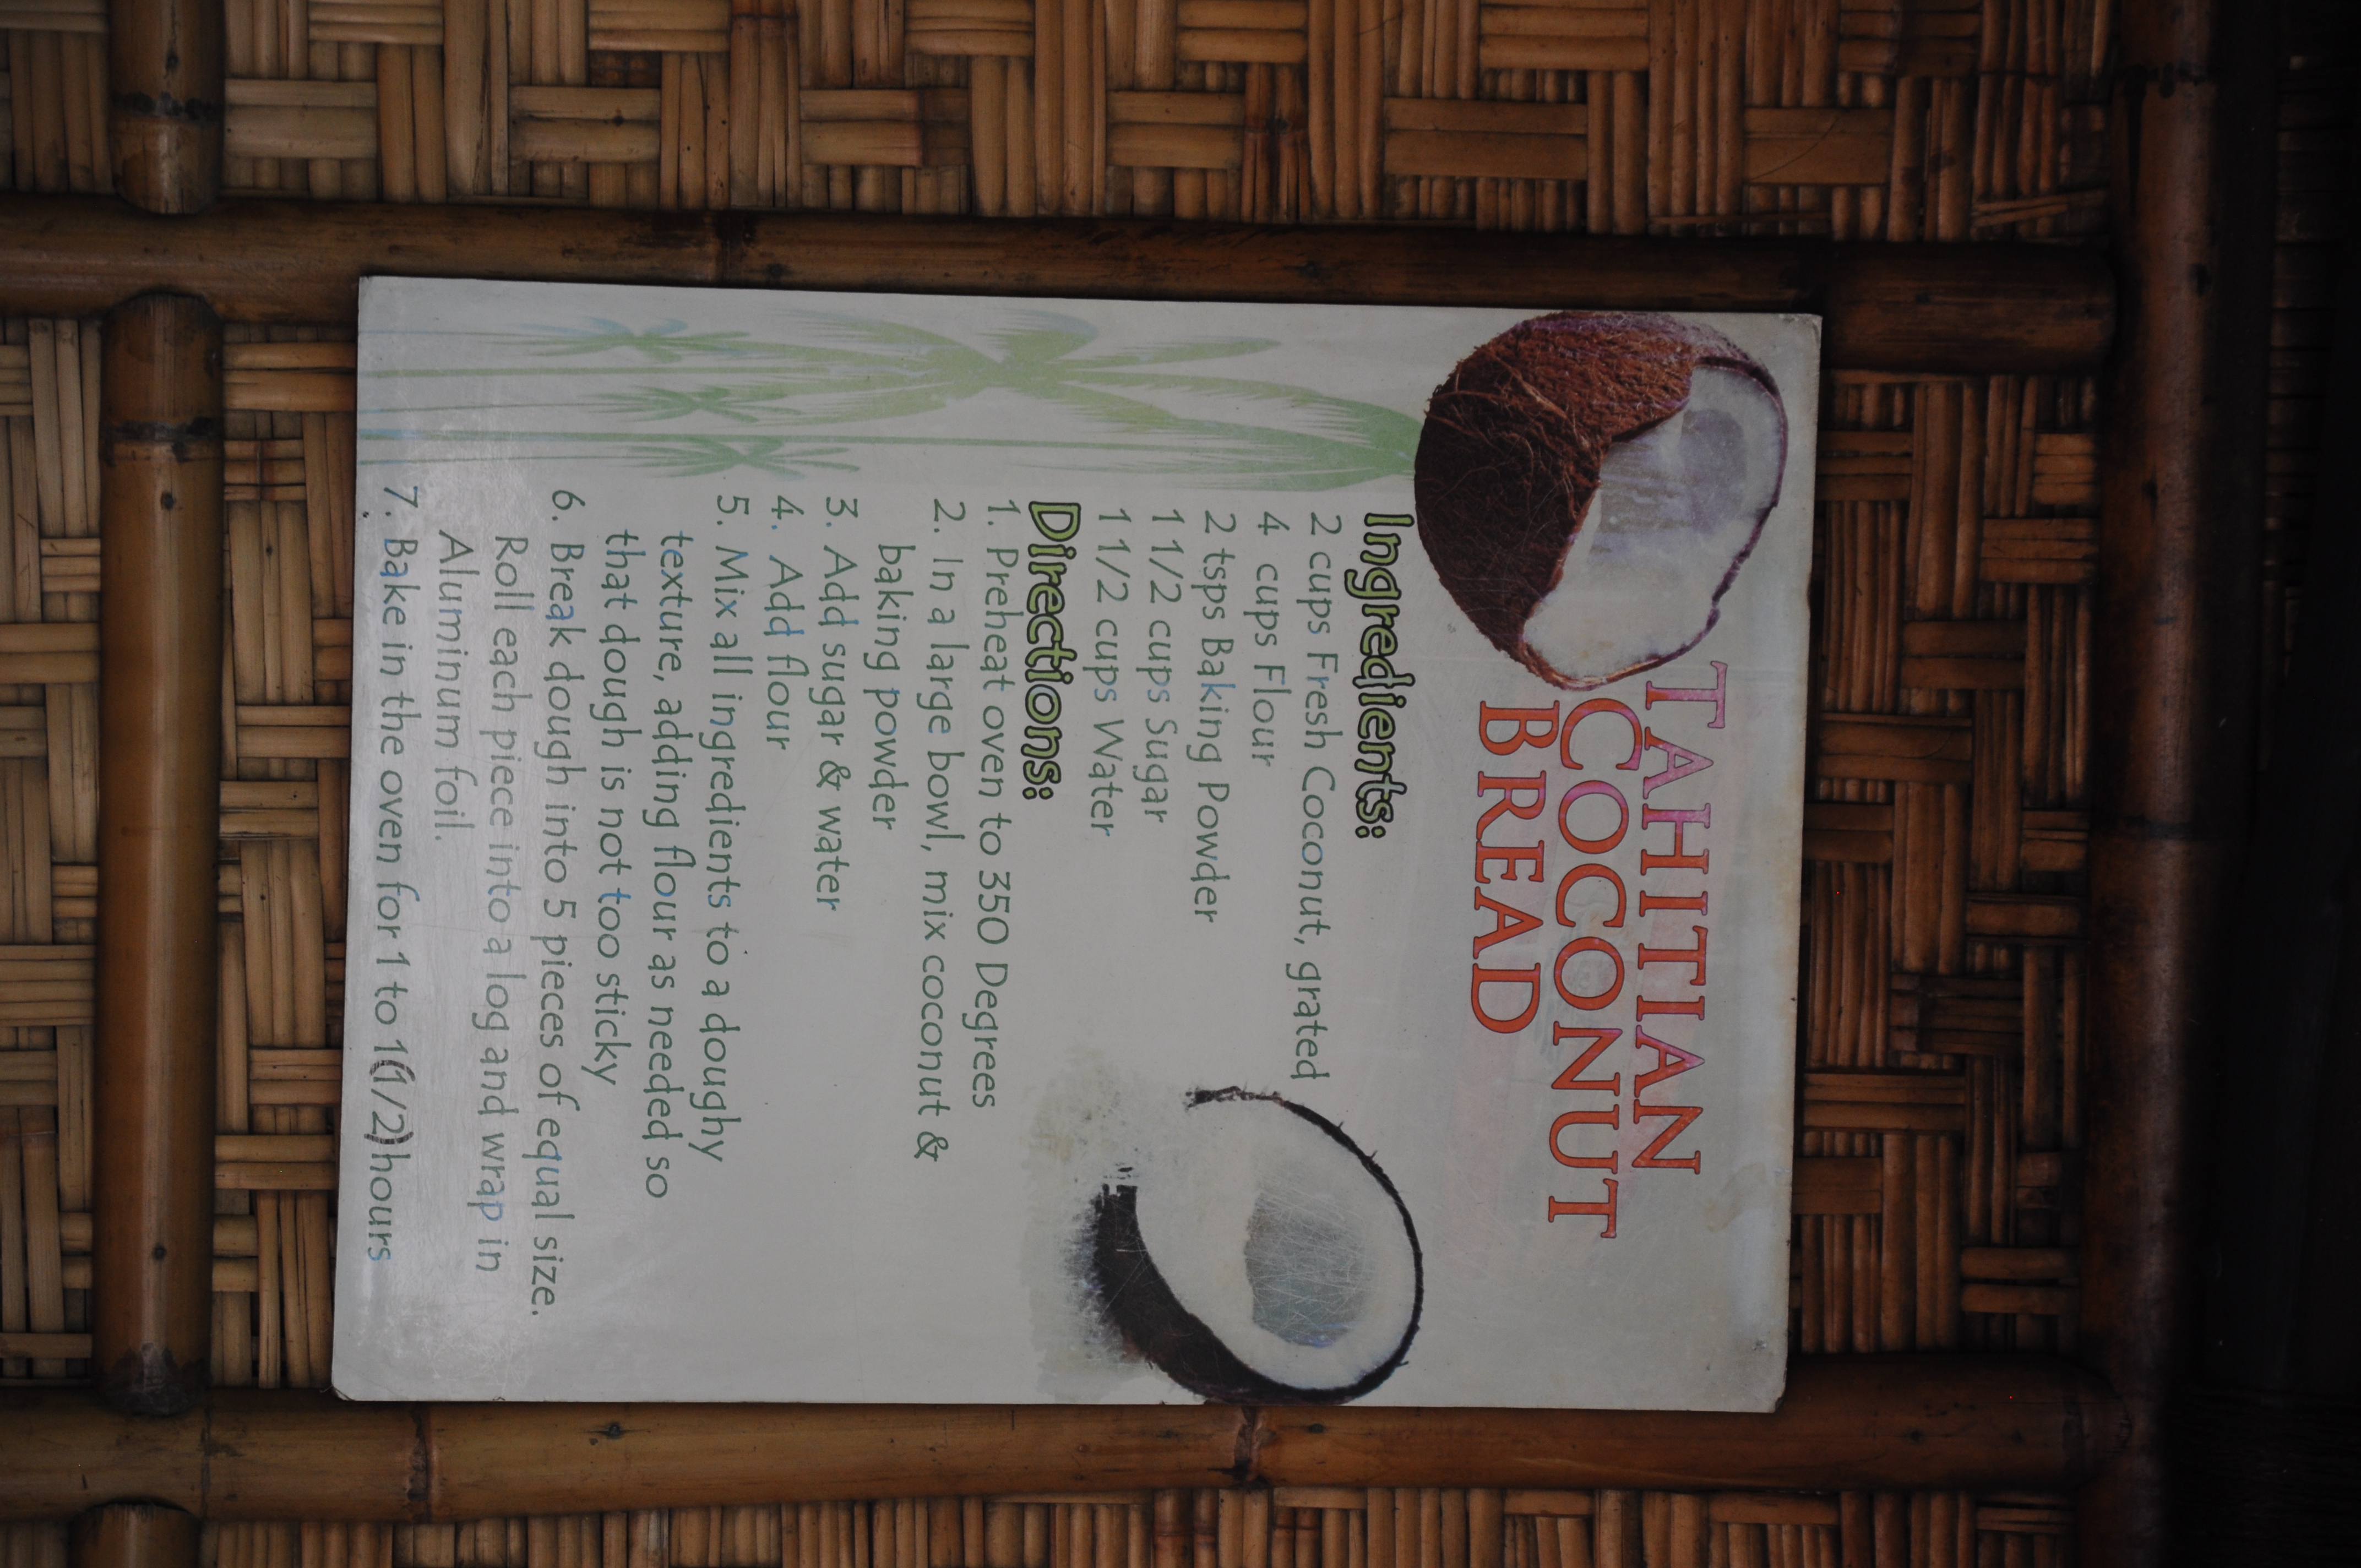 TAHITIAN
COCONUT
BREAD
Ingredients:
2 cups Fresh Coconut, grated
4 cups Flour
2 tsps Baking Powder
1 1/2 cups Sugar
1 1/2 cups Water
Directions:
1. Preheat oven to 350 Degrees
2. In a large bowl, mix coconut &
baking powder
3. Add sugar & water
4. Add flour
5. Mix all ingredients to a doughy
texture, adding flour as needed so
that dough is not too sticky
6. Break dough into 5 pieces of equal size.
Roll each piece into a log and wrap in
Aluminum foil.
7. Bake in the oven for 1 to 1(1/2)hours